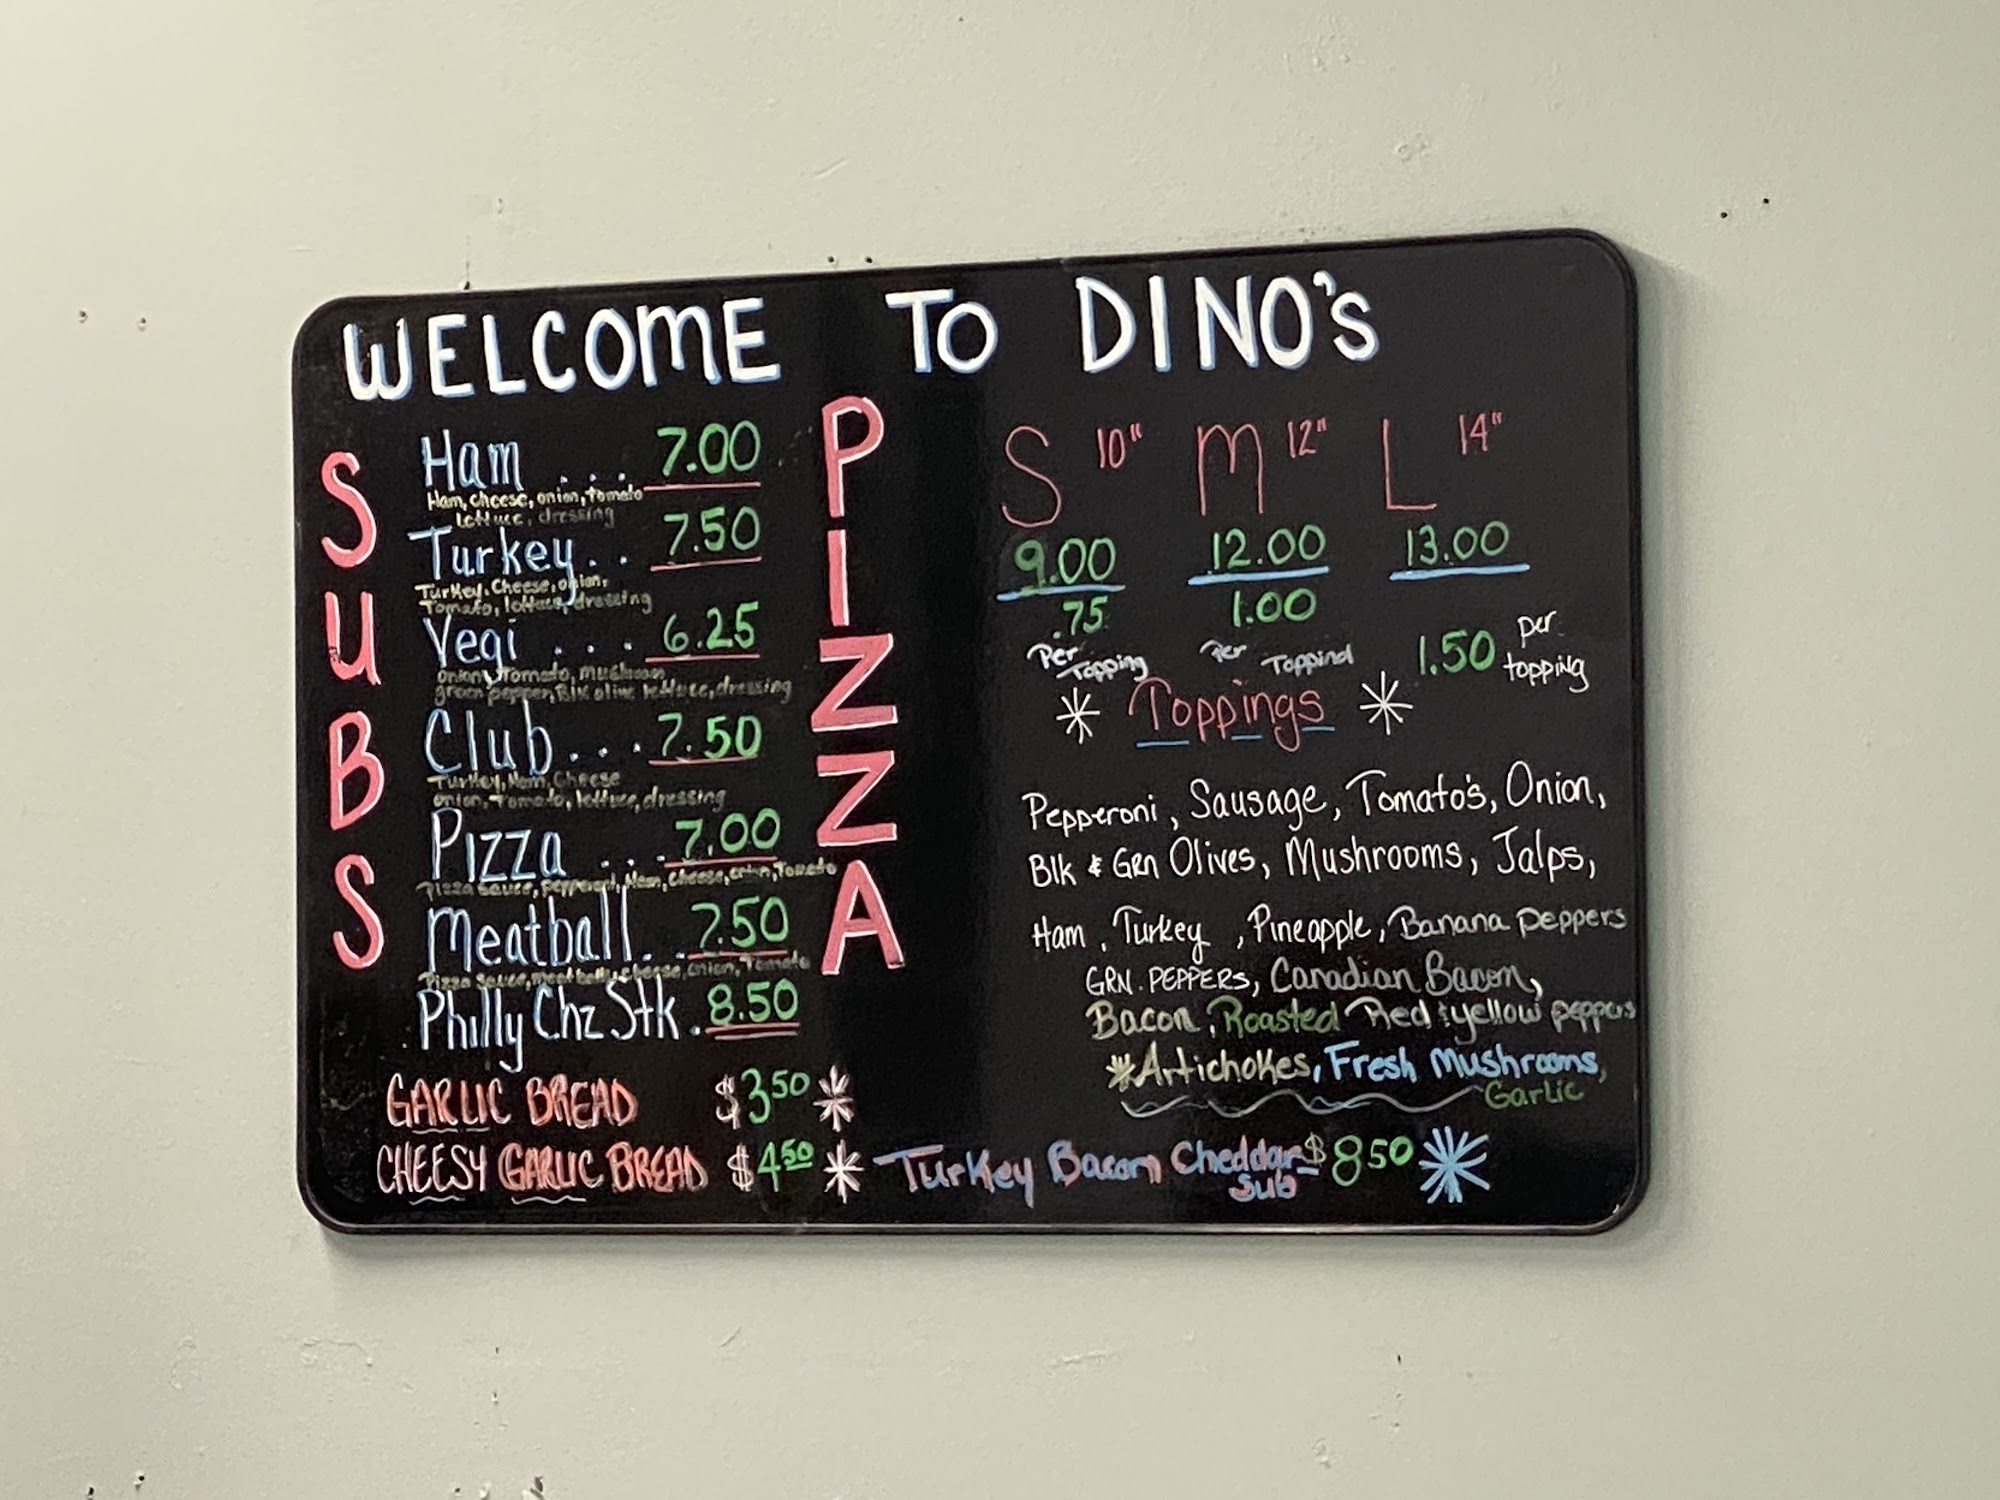 WELCOME TO DINO's
SUBS
Ham . . . 7.00
Ham, cheese, onion, tomato
lettuce, dressing
Turkey . . 7.50
Turkey, Cheese, onion,
Tomato, lettuce, dressing
Vegi . . . 6.25
onion, Tomato, mushroom
green pepper, Blk olive lettuce, dressing
Club . . . 7.50
Turkey, Ham, Cheese
onion, Tomato, lettuce, dressing
Pizza . . . 7.00
Pizza Sauce, pepperoni, Ham, cheese, onion, Tomato
Meatball . . 7.50
Pizza Sauce, meatballs, cheese, onion, Tomato
Philly Chz Stk . 8.50
GARLIC BREAD $3.50 *
CHEESY GARLIC BREAD $4.50 *
PIZZA
S 10" M 12" L 14"
9.00 12.00 13.00
.75 1.00 1.50 per topping
Per Topping Per Topping
* Toppings *
Pepperoni, Sausage, Tomato's, Onion,
Blk & Grn Olives, Mushrooms, Jalps,
Ham, Turkey, Pineapple, Banana peppers
GRN. PEPPERS, Canadian Bacon,
Bacon, Roasted Red & yellow peppers
*Artichokes, Fresh Mushrooms,
Garlic
Turkey Bacon Cheddar $8.50 *
Sub